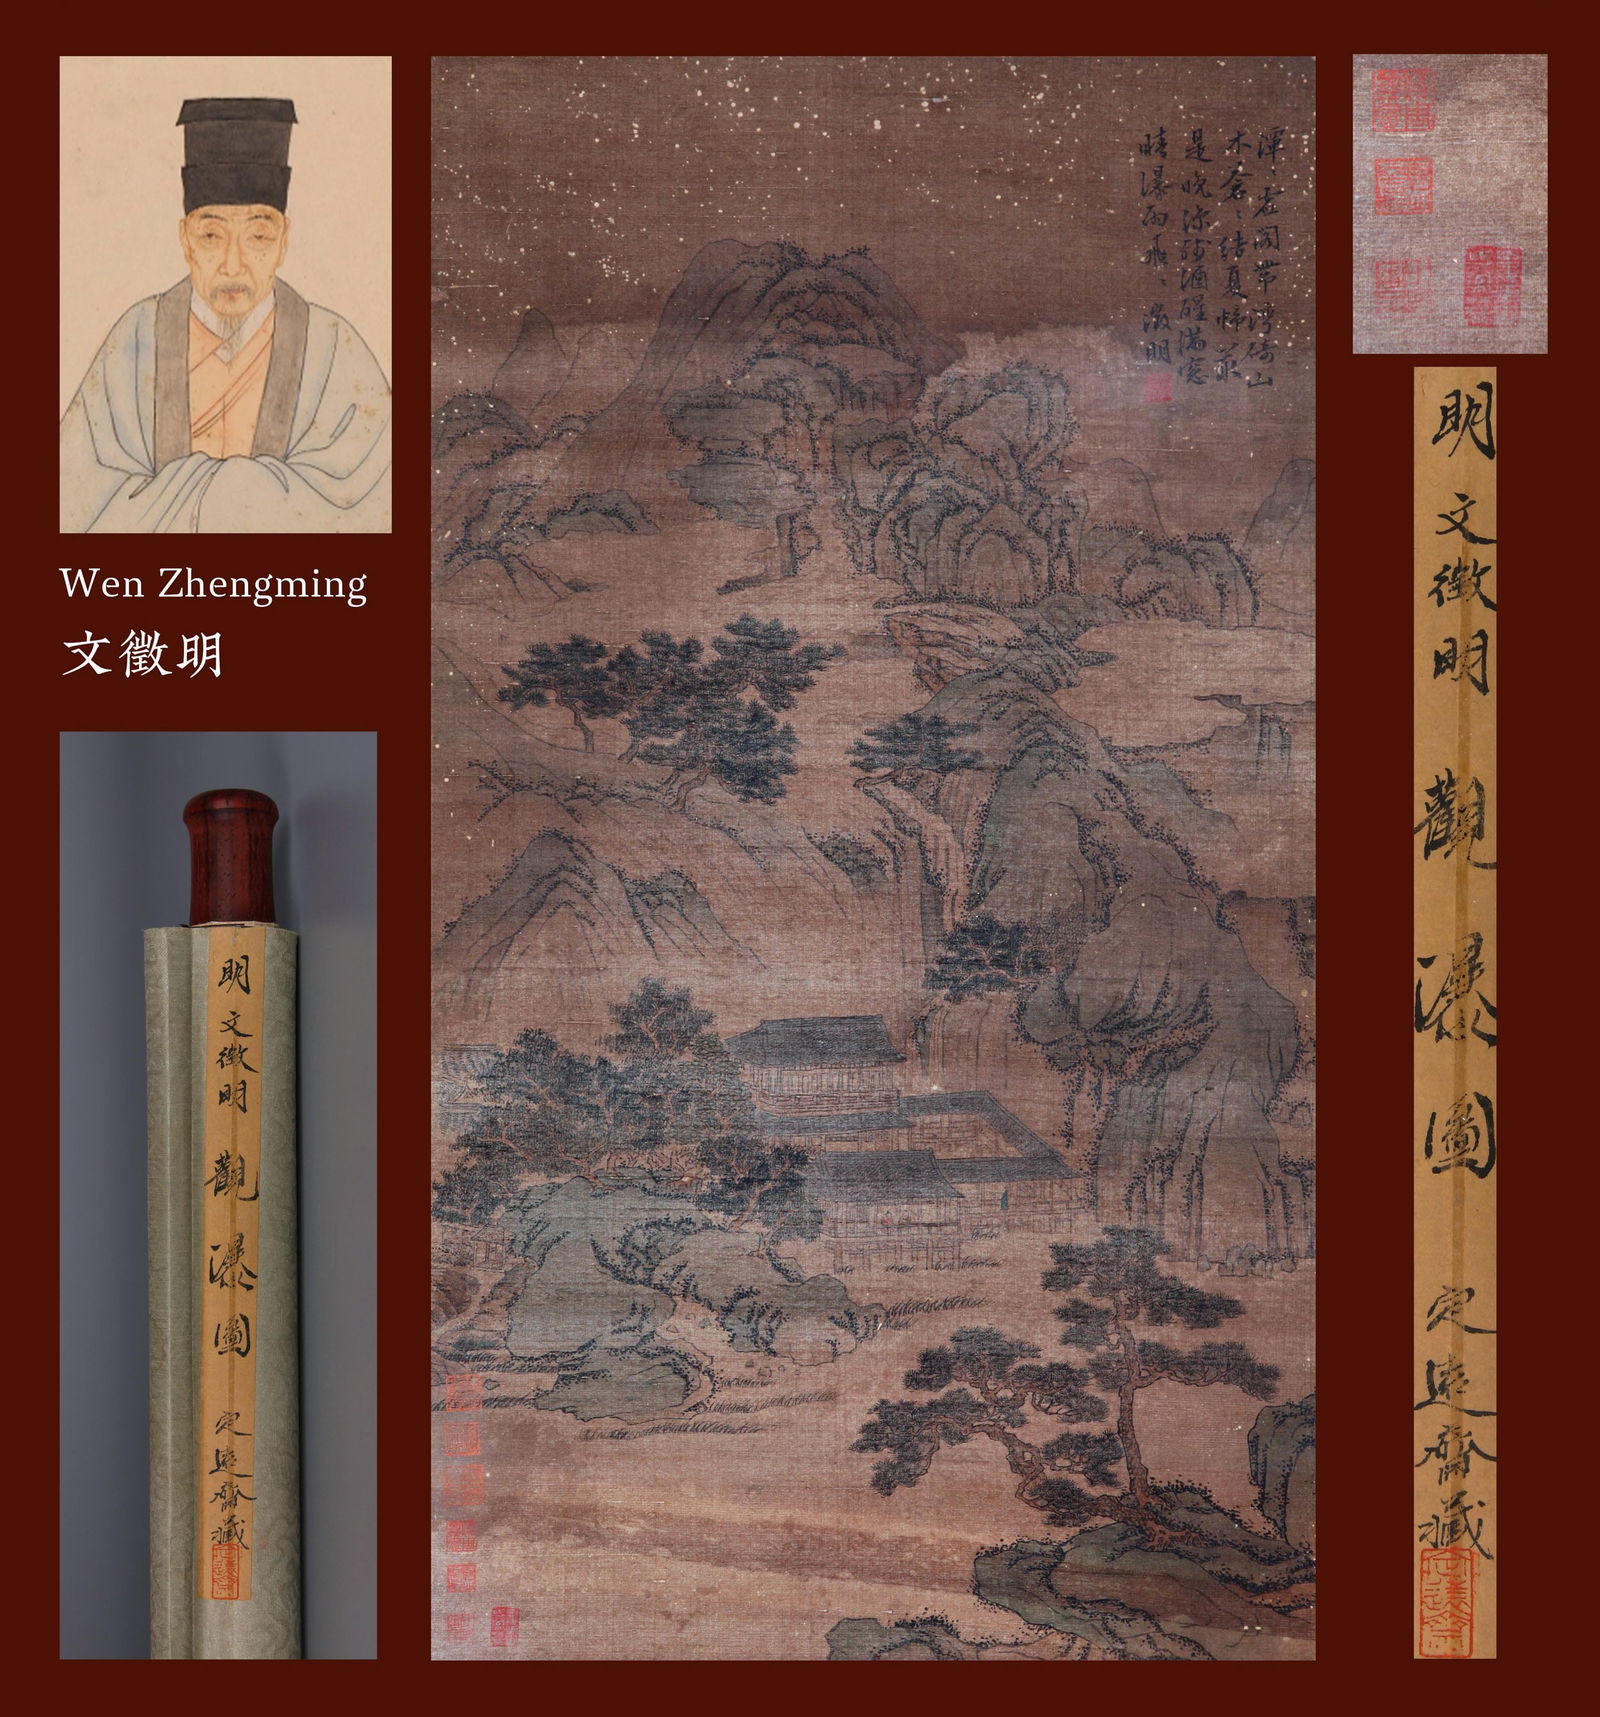 Wen Zhengming
文徵明
明 文徵明 觀瀑圖 定遠齋藏
渾〻虛閣帶灣碕山
木蒼〻結夏幃最
是晚涼殘酒醒滿窓
晴瀑雨飛〻徵明
明 文徵明 觀瀑圖 定遠齋藏